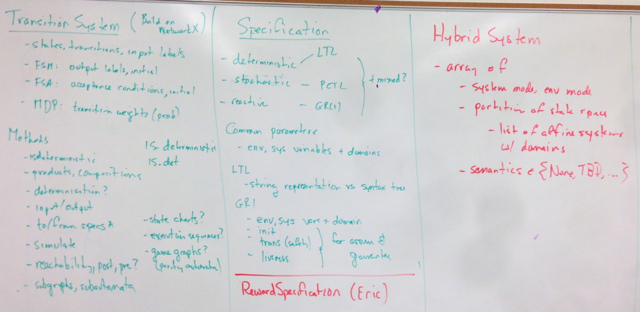 Transition System (Build on NetworkX)
- states, transitions, input labels
- FSM: output labels, initial
- FSA: acceptance conditions, initial
- MDP: transition weights (prob)
Methods
- isdeterministic
- products, compositions
- determinisation?
- input/output
- to/from specs*
- simulate
- reachability, post, pre?
- subgraphs, subautomata
is_deterministic
is_det
- state charts?
- execution sequences?
- game graphs?
(parity automata)
Specification
- deterministic - LTL
- stochastic - PCTL
- reactive - GR(1)
+ mixed?
Common parameters
- env, sys variables + domains
LTL
- string representation vs syntax tree
GR1
- env, sys vars + domain
- init
- trans (safety)
- liveness
for assum &
guarantee
RewardSpecification (Eric)
Hybrid System
- array of
- system mode, env mode
- partition of state space
- list of affine systems
w/ domains
- semantics ∈ {None, TBD, ...}